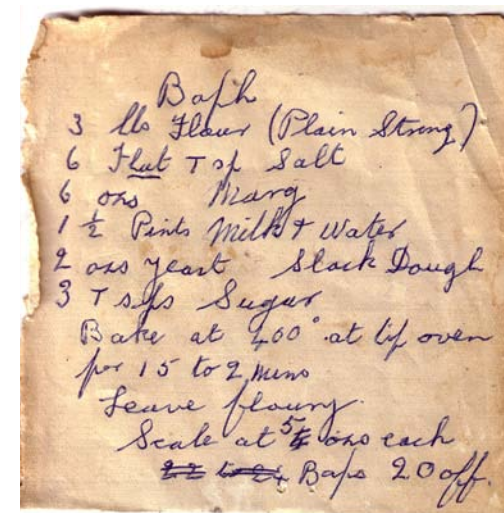 3 lbs Flour (Plain Strong)
6 Flat Tsp Salt
6 ozs Marg
1 ½ Pints Milk & Water
2 ozs yeast Slack Dough
3 Tsps Sugar
Bake at 400° at oven
for 15 to 2 mins
Leave floury.
Scale at 5 ozs each
Baps 20 off.